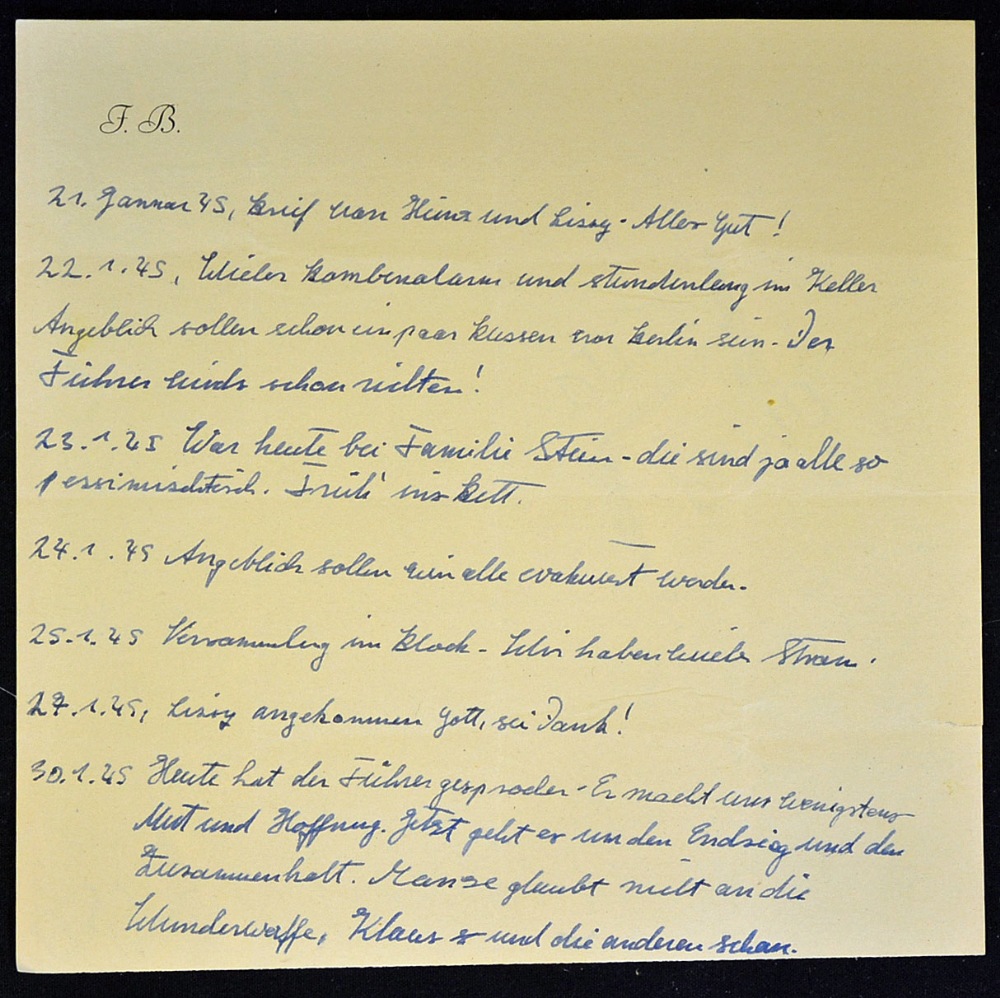 F. B.
21. Januar 45, Brief von Heinz und Lissy - Alles Gut!
22.1.45, Wieder Bombenalarm und stundenlang im Keller
Angeblich sollen schon ein paar Russen vor Berlin sein - Der
Führer wirds schon richten!
23.1.45 War heute bei Familie Stein - die sind ja alle so
pessimistisch. Früh ins Bett.
24.1.45 Angeblich sollen wir alle evakuiert werden.
25.1.45 Versammlung im Block - Wir haben wieder Strom.
27.1.45, Lissy angekommen Gott, sei Dank!
30.1.45 Heute hat der Führer gesprochen - Er macht uns wenigstens
Mut und Hoffnung. Jetzt geht es um den Endsieg und den
Zusammenhalt. glaubt nicht an die
Wunderwaffe, Klaus und die anderen schon.